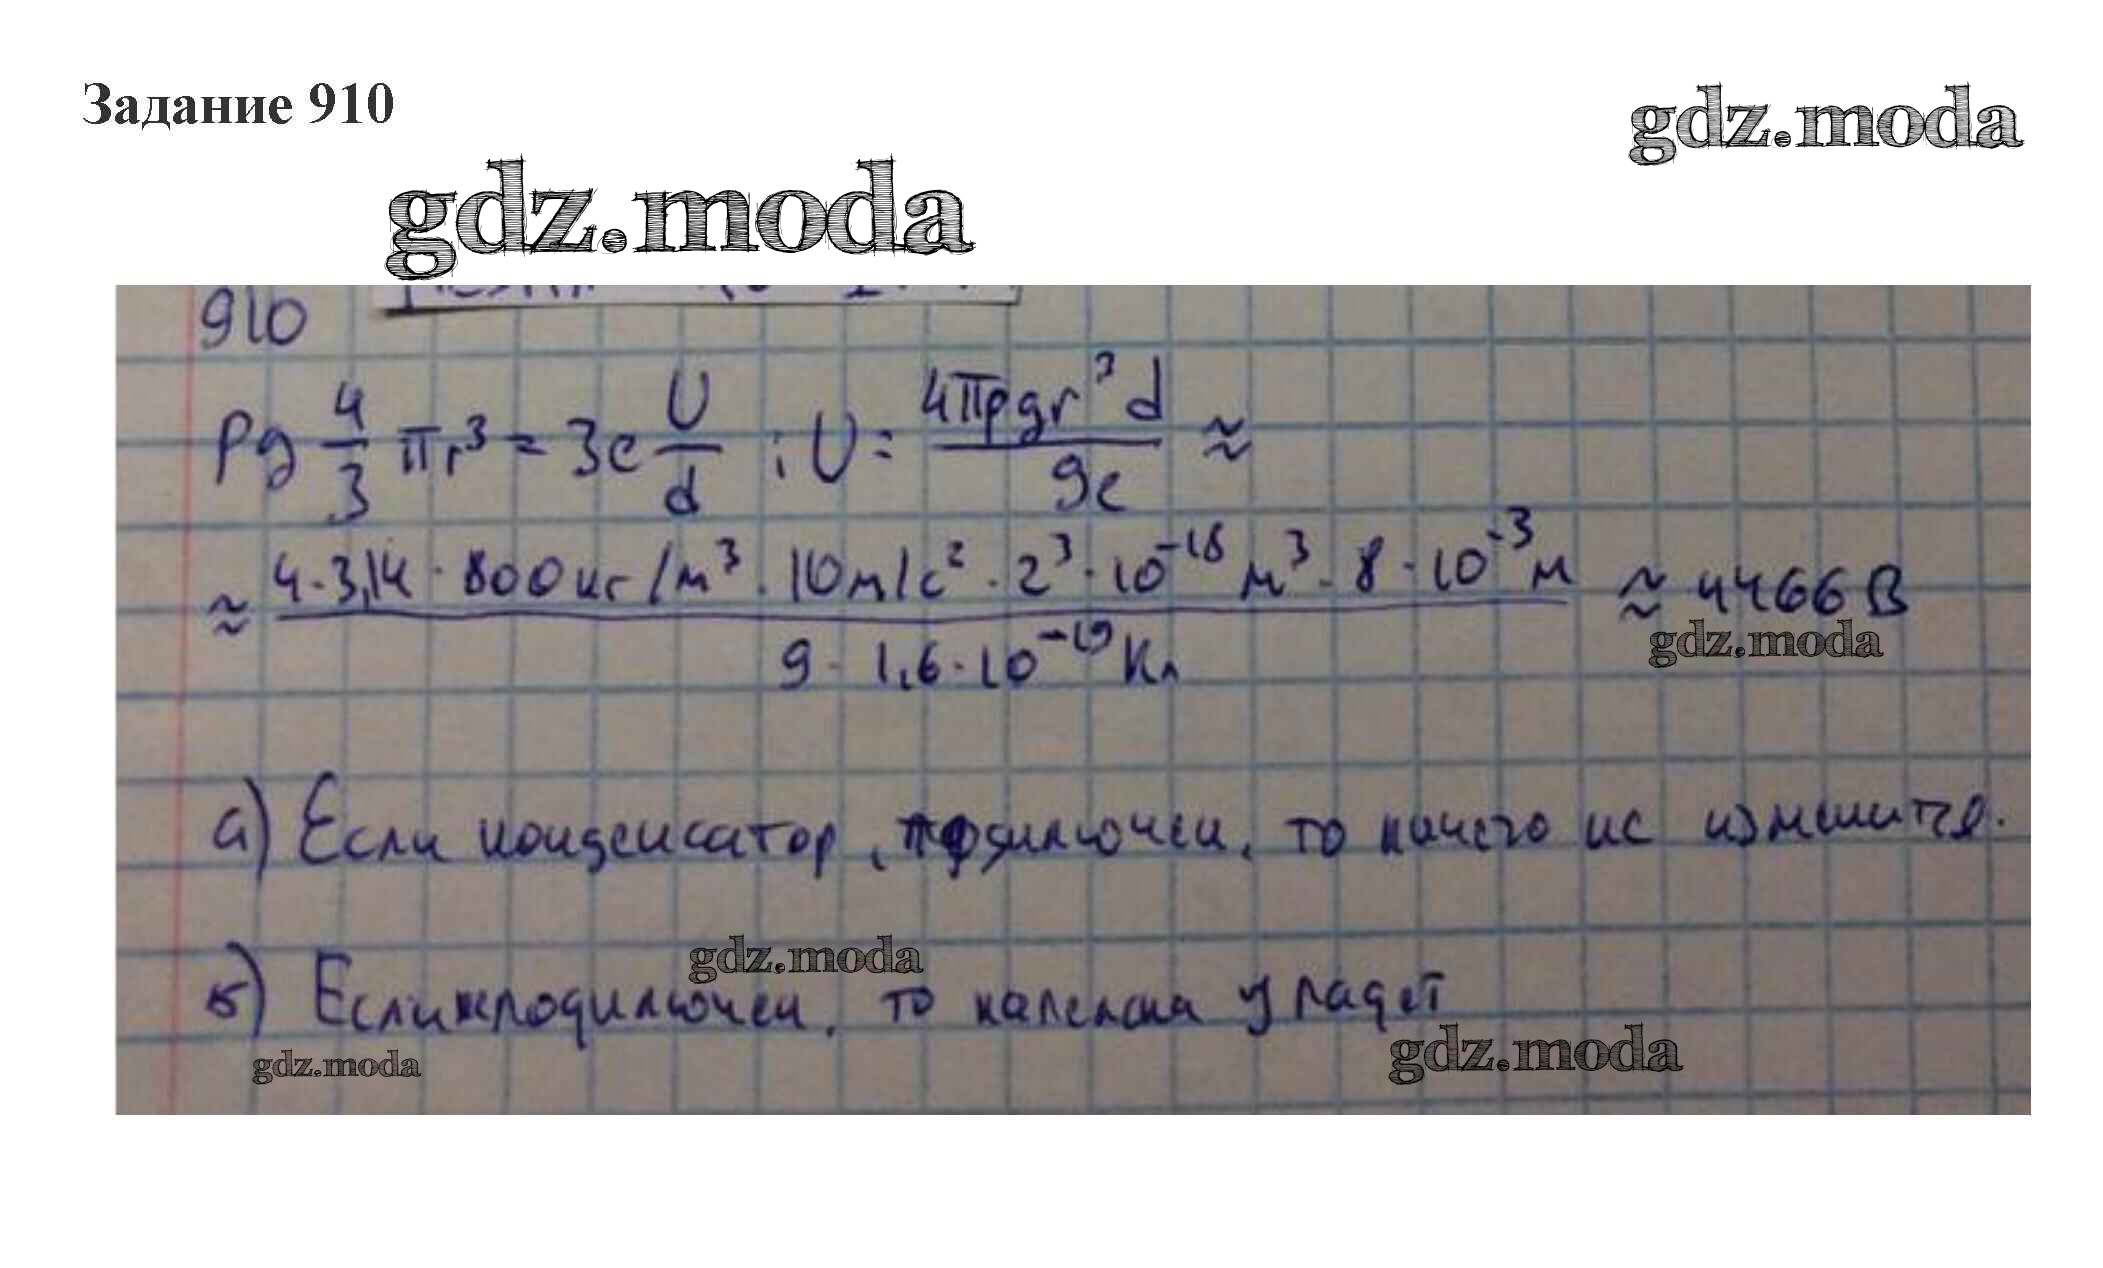 Задание 910
gdz.moda
gdz.moda
910
ρg 4/3 πr³ = 3e U/d ; U = 4πρgr³d / 9e ≈
≈ 4·3,14·800кг/м³·10м/с²·2³·10⁻¹⁸м³·8·10⁻³м / 9·1,6·10⁻¹⁹Кл ≈ 4466В
gdz.moda
а) Если конденсатор, то ничего не изменится.
gdz.moda
б) Если то капелька упадет
gdz.moda
gdz.moda